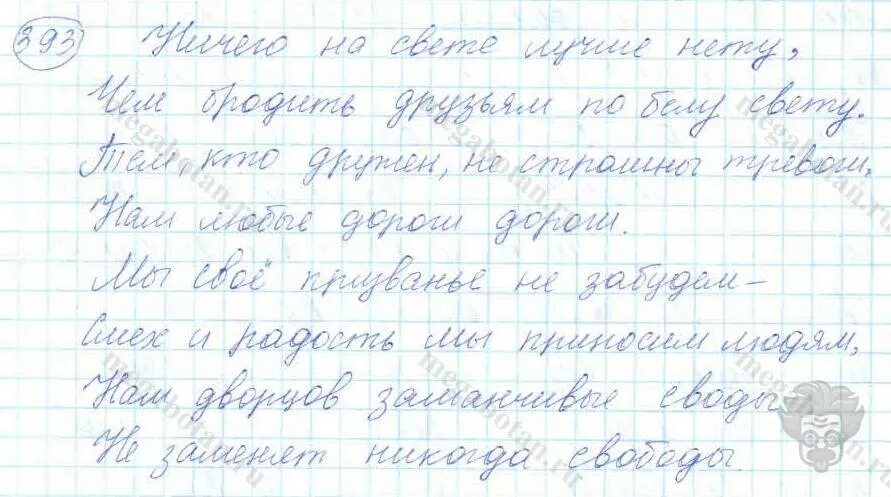 393 Ничего на свете лучше нету,
Чем бродить друзьям по белу свету.
Тем, кто дружен, не страшны тревоги,
Нам любые дороги дороги.
Мы своё призванье не забудем –
Смех и радость мы приносим людям,
Нам дворцов заманчивые своды
Не заменят никогда свободы.
megabotan.ru